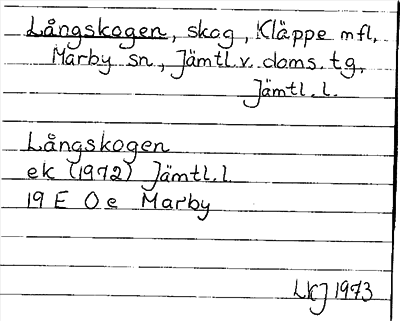 Långskogen, skog, Kläppe mfl,
Marby sn, Jämtl.v.doms.tg,
Jämtl.l.
Långskogen
ek (1972) Jämtl.l
19 E Oe Marby
LKJ 1973